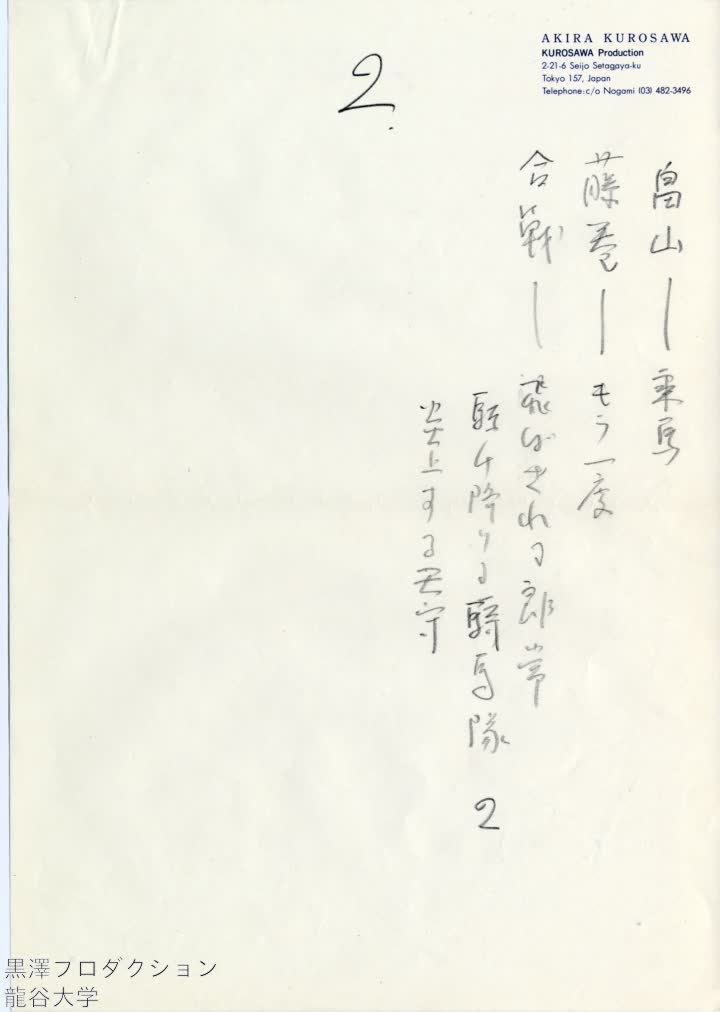 AKIRA KUROSAWA
KUROSAWA Production
2-21-6 Seijo Setagaya-ku
Tokyo 157, Japan
Telephone:c/o Nogami (03) 482-3496
2.
畠山ー乗馬
藤巻ーもう一度
合戦ー飛ばされる郎常
駈け降りる騎馬隊 2
炎上する天守
黒澤プロダクション
龍谷大学